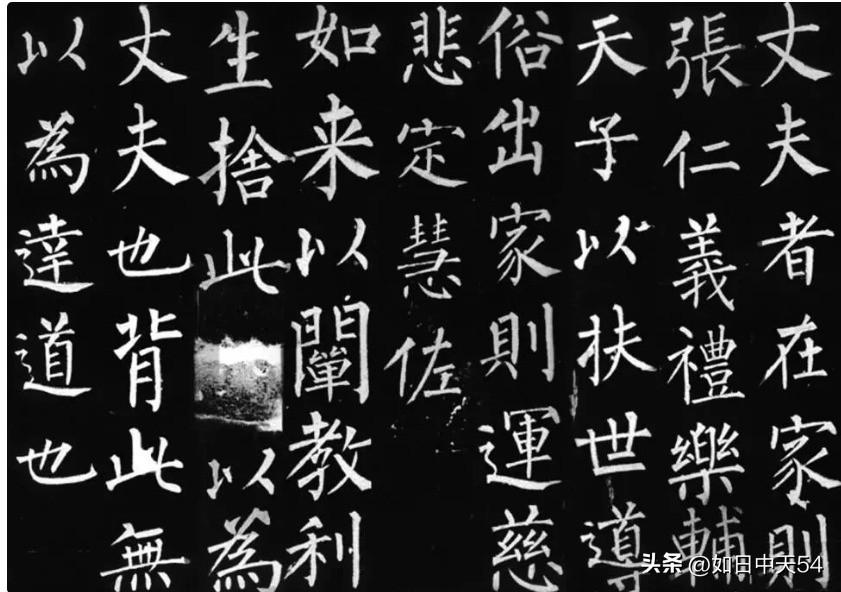 丈夫者在家則
張仁義禮樂輔
天子以扶世導
俗出家則運慈
悲定慧佐
如来以闡教利
生捨此以為
丈夫也背此無
以為達道也
头条 @如日中天54